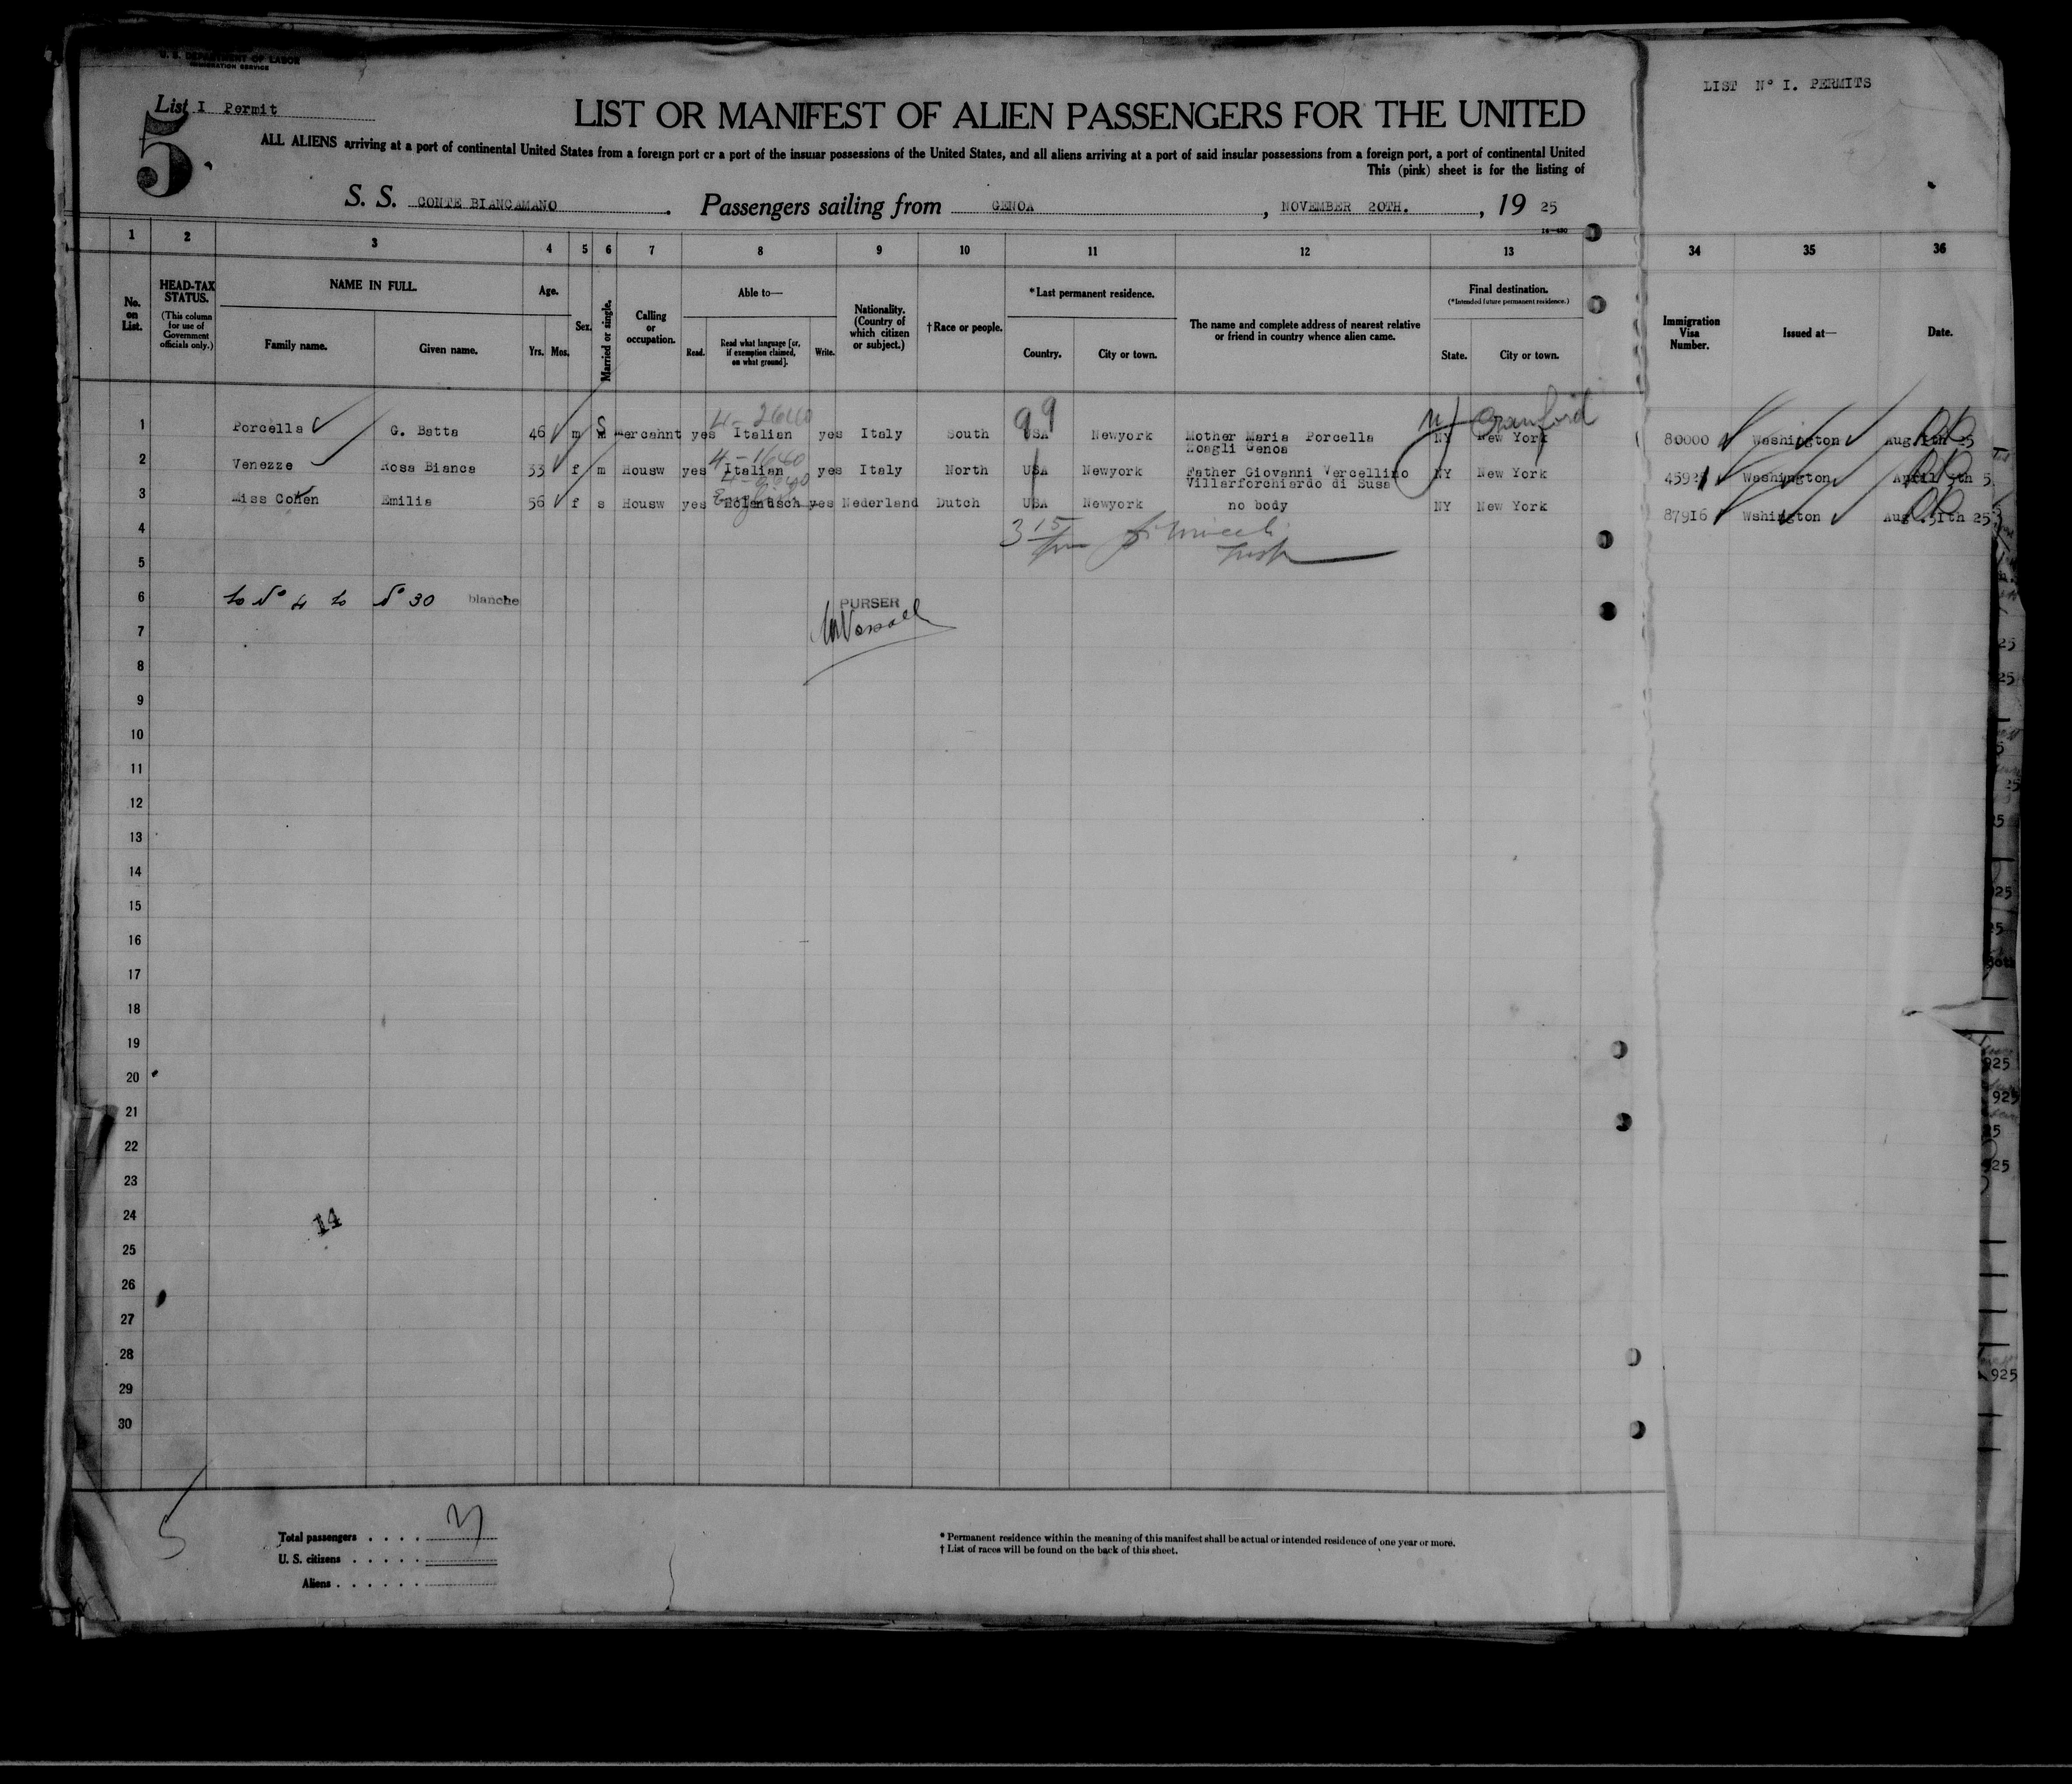 U. S. DEPARTMENT OF LABOR
IMMIGRATION SERVICE
LIST Nº I. PERMITS
List I Permit
5
LIST OR MANIFEST OF ALIEN PASSENGERS FOR THE UNITED
ALL ALIENS arriving at a port of continental United States from a foreign port or a port of the insular possessions of the United States, and all aliens arriving at a port of said insular possessions from a foreign port, a port of continental United
This (pink) sheet is for the listing of
S. S. CONTE BIANCAMANO. Passengers sailing from GENOA, NOVEMBER 20TH., 19 25
1 2 3 4 5 6 7 8 9 10 11 12 13 34 35 36
No. on List.
HEAD-TAX STATUS.
(This column for use of Government officials only.)
NAME IN FULL.
Family name. Given name.
Age.
Yrs. Mos.
Sex.
Married or single.
Calling or occupation.
Able to—
Read. Read what language [or, if exemption claimed, on what ground]. Write.
Nationality. (Country of which citizen or subject.)
†Race or people.
*Last permanent residence.
Country. City or town.
The name and complete address of nearest relative or friend in country whence alien came.
Final destination.
(*Intended future permanent residence.)
State. City or town.
Immigration Visa Number.
Issued at—
Date.
4-2640 99 NJ Cranford
1 Porcella G. Batta 46 m S mercahnt yes Italian yes Italy South USA Newyork Mother Maria Porcella NY New York 80000 Washington Aug
Zoagli Genoa
2 Venezze Rosa Bianca 33 f m Housw yes Italian yes Italy North USA Newyork Father Giovanni Vercellino NY New York Washington April 5
Villarforchiardo di Susa
3 Miss Cohen Emilia 56 f s Housw yes Holendsch yes Nederland Dutch USA Newyork no body NY New York 87916 Wshington Aug 25
4
5
6 to Nº 4 to Nº 30 blanche PURSER
7
8
9
10
11
12
13
14
15
16
17
18
19
20
21
22
23
24
14
25
26
27
28
29
30
5
Total passengers . . . . 3
U. S. citizens . . . . .
Aliens . . . . . .
* Permanent residence within the meaning of this manifest shall be actual or intended residence of one year or more.
† List of races will be found on the back of this sheet.